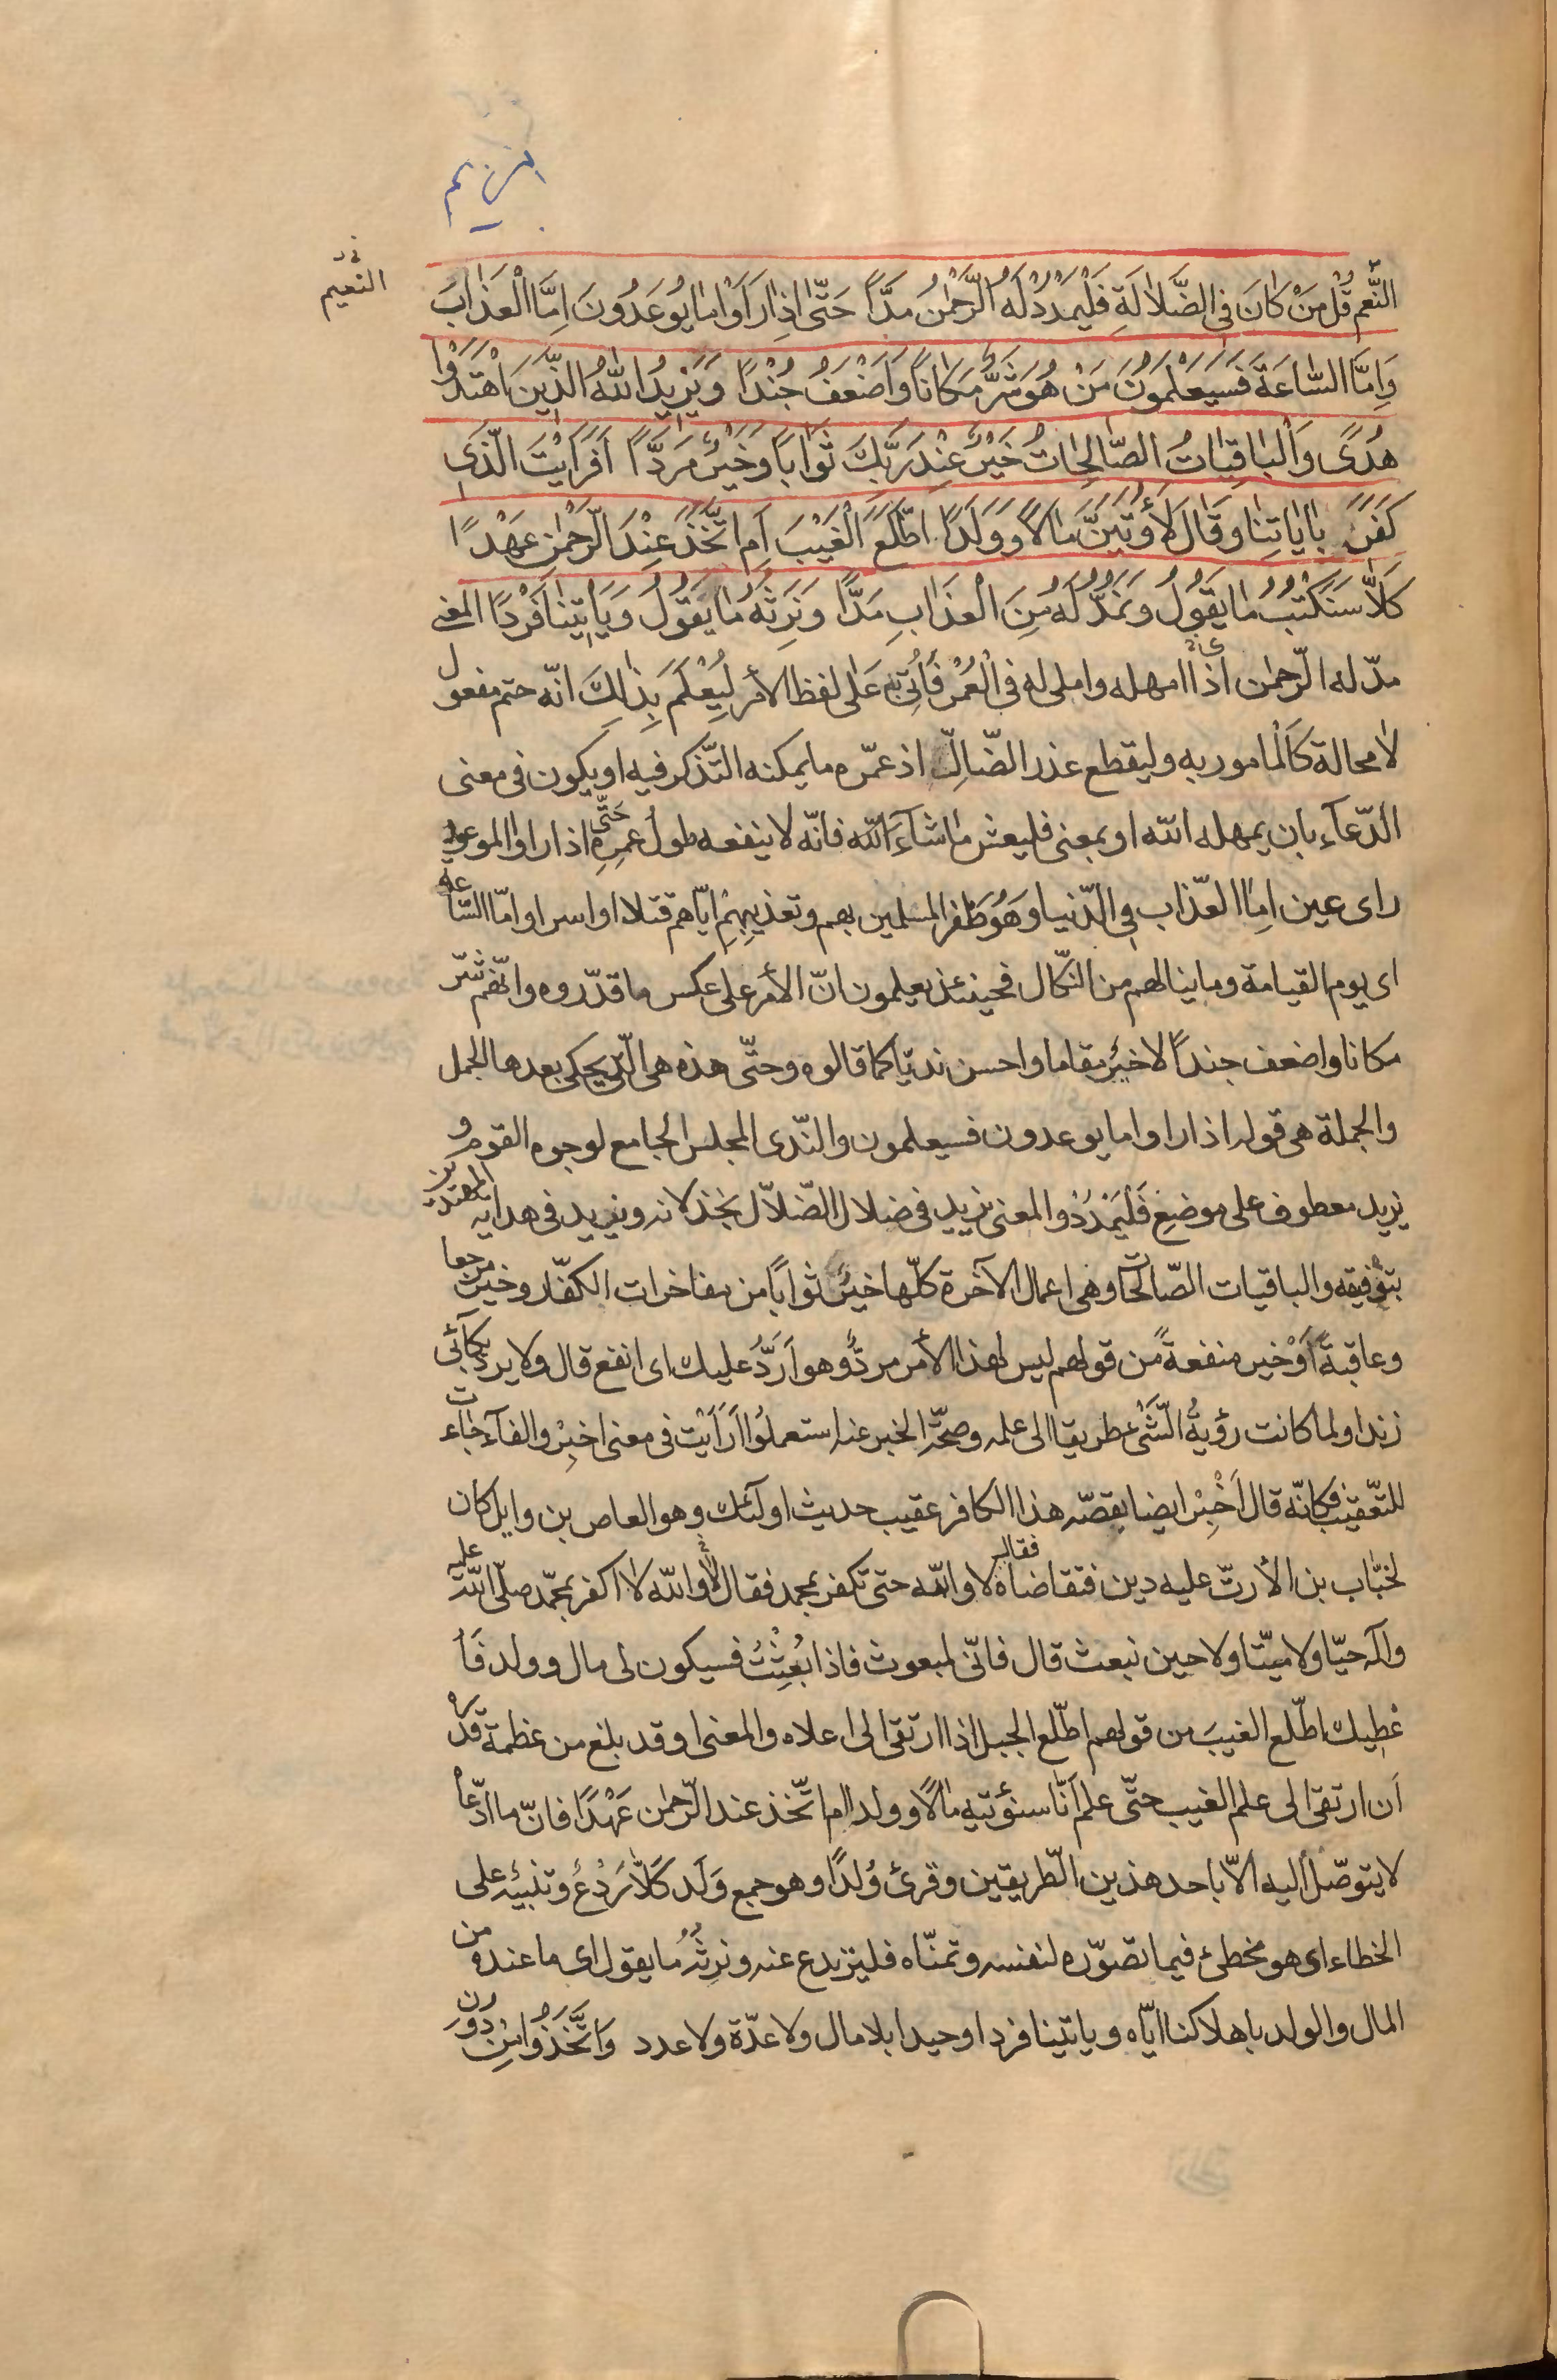 مريم
النعيم
النَّعم قُل مَنْ كانَ فى الضَّلالَةِ فَلْيَمْدُدْ لَهُ الرَّحْمٰنُ مَدّاً حَتّى اِذا رَاَوْا ما يُوعَدُونَ اِمَّا الْعَذابَ
وَاِمَّا السّاعَةَ فَسَيَعْلَمُونَ مَنْ هُوَ شَرٌّ مَكاناً وَاَضْعَفُ جُنْداً وَيَزيدُ اللّٰهُ الَّذينَ اهْتَدَوْا
هُدًى وَالْباقِياتُ الصّالِحاتُ خَيْرٌ عِنْدَ رَبِّكَ ثَواباً وَخَيْرٌ مَرَدّاً اَفَرَاَيْتَ الَّذى
كَفَرَ بِاياتِنا وَقالَ لَأُوتَيَنَّ مالاً وَوَلَداً اطَّلَعَ الْغَيْبَ اَمِ اتَّخَذَ عِنْدَ الرَّحْمٰنِ عَهْداً
كَلاّ سَنَكْتُبُ ما يَقُولُ وَنَمُدُّ لَهُ مِنَ الْعَذابِ مَدّاً وَنَرِثُهُ ما يَقُولُ وَيَاْتينا فَرْداً المعنى
مدّ له الرّحمٰن اى اذا امهله واملى له فى الْعُمْر فَأُتِىَ بِه عَلى لفظ الأمر لِيُعْلَمَ بِذٰلِكَ انّه حتم مفعول
لا محالة كَالْمامور به وليقطع عذر الضّالّ اذ عمّره ما يمكنه التّذكر فيه او يكون فى معنى
الدّعآء بان يمهله اللّه او بمعنى فليعش ما شآءَ اللّه فانّه لا ينفعه طولُ عمرِه حَتّى اذا راوا الموعود
راى عين اِمّا العذاب فى الدّنيا وهُوَ ظَفَر المسلمين بهم وتعذيبهِمْ ايّاهم قتلا او اسرا وامّا السّاعة
اى يوم القيامة وما ينالهم من النّكال فحينئذ يعلمون انّ الأمر على عكس ما قدّروه وانّهم شرّ
مكانا واضعف جنداً لا خيرٌ مقاما واحسن نديّا كما قالوه وحتّى هذه هى الّتى يحكى بعدها الجمل
والجملة هى قوله اذا راوا ما يوعدون فسيعلمون والنّدى المجلس الجامع لوجوه القوم و
يزيد معطوف على موضع فَلْيَمْدُدْ والمعنى يزيد فى ضلال الضّلاّل بخذلانه ويزيد فى هداية المهتدين
بتوفيقه والباقيات الصّالحات وهى اعمال الآخرة كلّها خيرٌ ثواباً من مفاخرات الكفّار وخير مرجعا
وعاقبةً اَوْ خير منفعةً من قولهم ليس لهذا الأمر مردٌّ وهو اَرَدُّ عليك اى انفع قال ولا يرد بكائى
زندا ولما كانت رؤيةُ الشّىْءِ طريقا الى علمه وصحّة الخبر عنه استعملُوا اَرَاَيْتَ فى معنى اخبِرْ والفآء جاءت
للتّعقيب فكانّه قال اَخْبِرْ ايضا بقصّة هذا الكافر عقيب حديث اولٰئك وهو العاص بن وايل كان
لخبّاب بن الأرتّ عليه دين فتقاضاه فقال لا واللّه حتى تكفر بمحمد فقال لا واللّه لا اكفر بمحمّد صلّى اللّه عليه
وآله حيّا ولا ميّتا ولا حين نبعث قال فانّى لمبعوث فاذا بُعِثْتُ فسيكون لى مال وولد فَأُ
عْطِيك اطّلع الغيبَ من قولهم اطّلع الجبل اذا ارتقى الى اعلاه والمعنى او قد بلغ من عظمة قدره
اَن ارتقى الى علم الغيب حتّى علم اَنّا سنؤتيه مالاً وولدا ام اتّخذ عند الرّحمٰن عَهْداً فانّ ما ادّعاه
لا يتوصّل اليه الاّ باحد هذين الطّريقين وقرئ وُلداً وهو جمع وَلَد كَلاّ رَدْعٌ وتنبيه على
الخطاء اى هو مخطئ فيما تصوّره لنفسه وتمنّاه فليرتدع عنه ونرِثُهُ ما يقول اى ما عنده من
المال والولد باهلاكنا ايّاه وياتينا فردا وحيدا بلا مال ولا عدّة ولا عدد وَاتَّخَذُوا مِنْ دُونِ